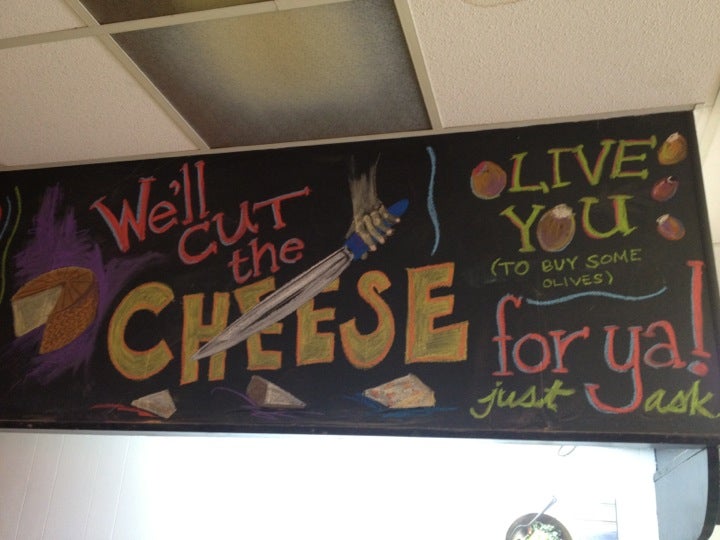 We'll
CUT
the
CHEESE
for ya!
just ask
OLIVE
YOU
(TO BUY SOME
OLIVES)